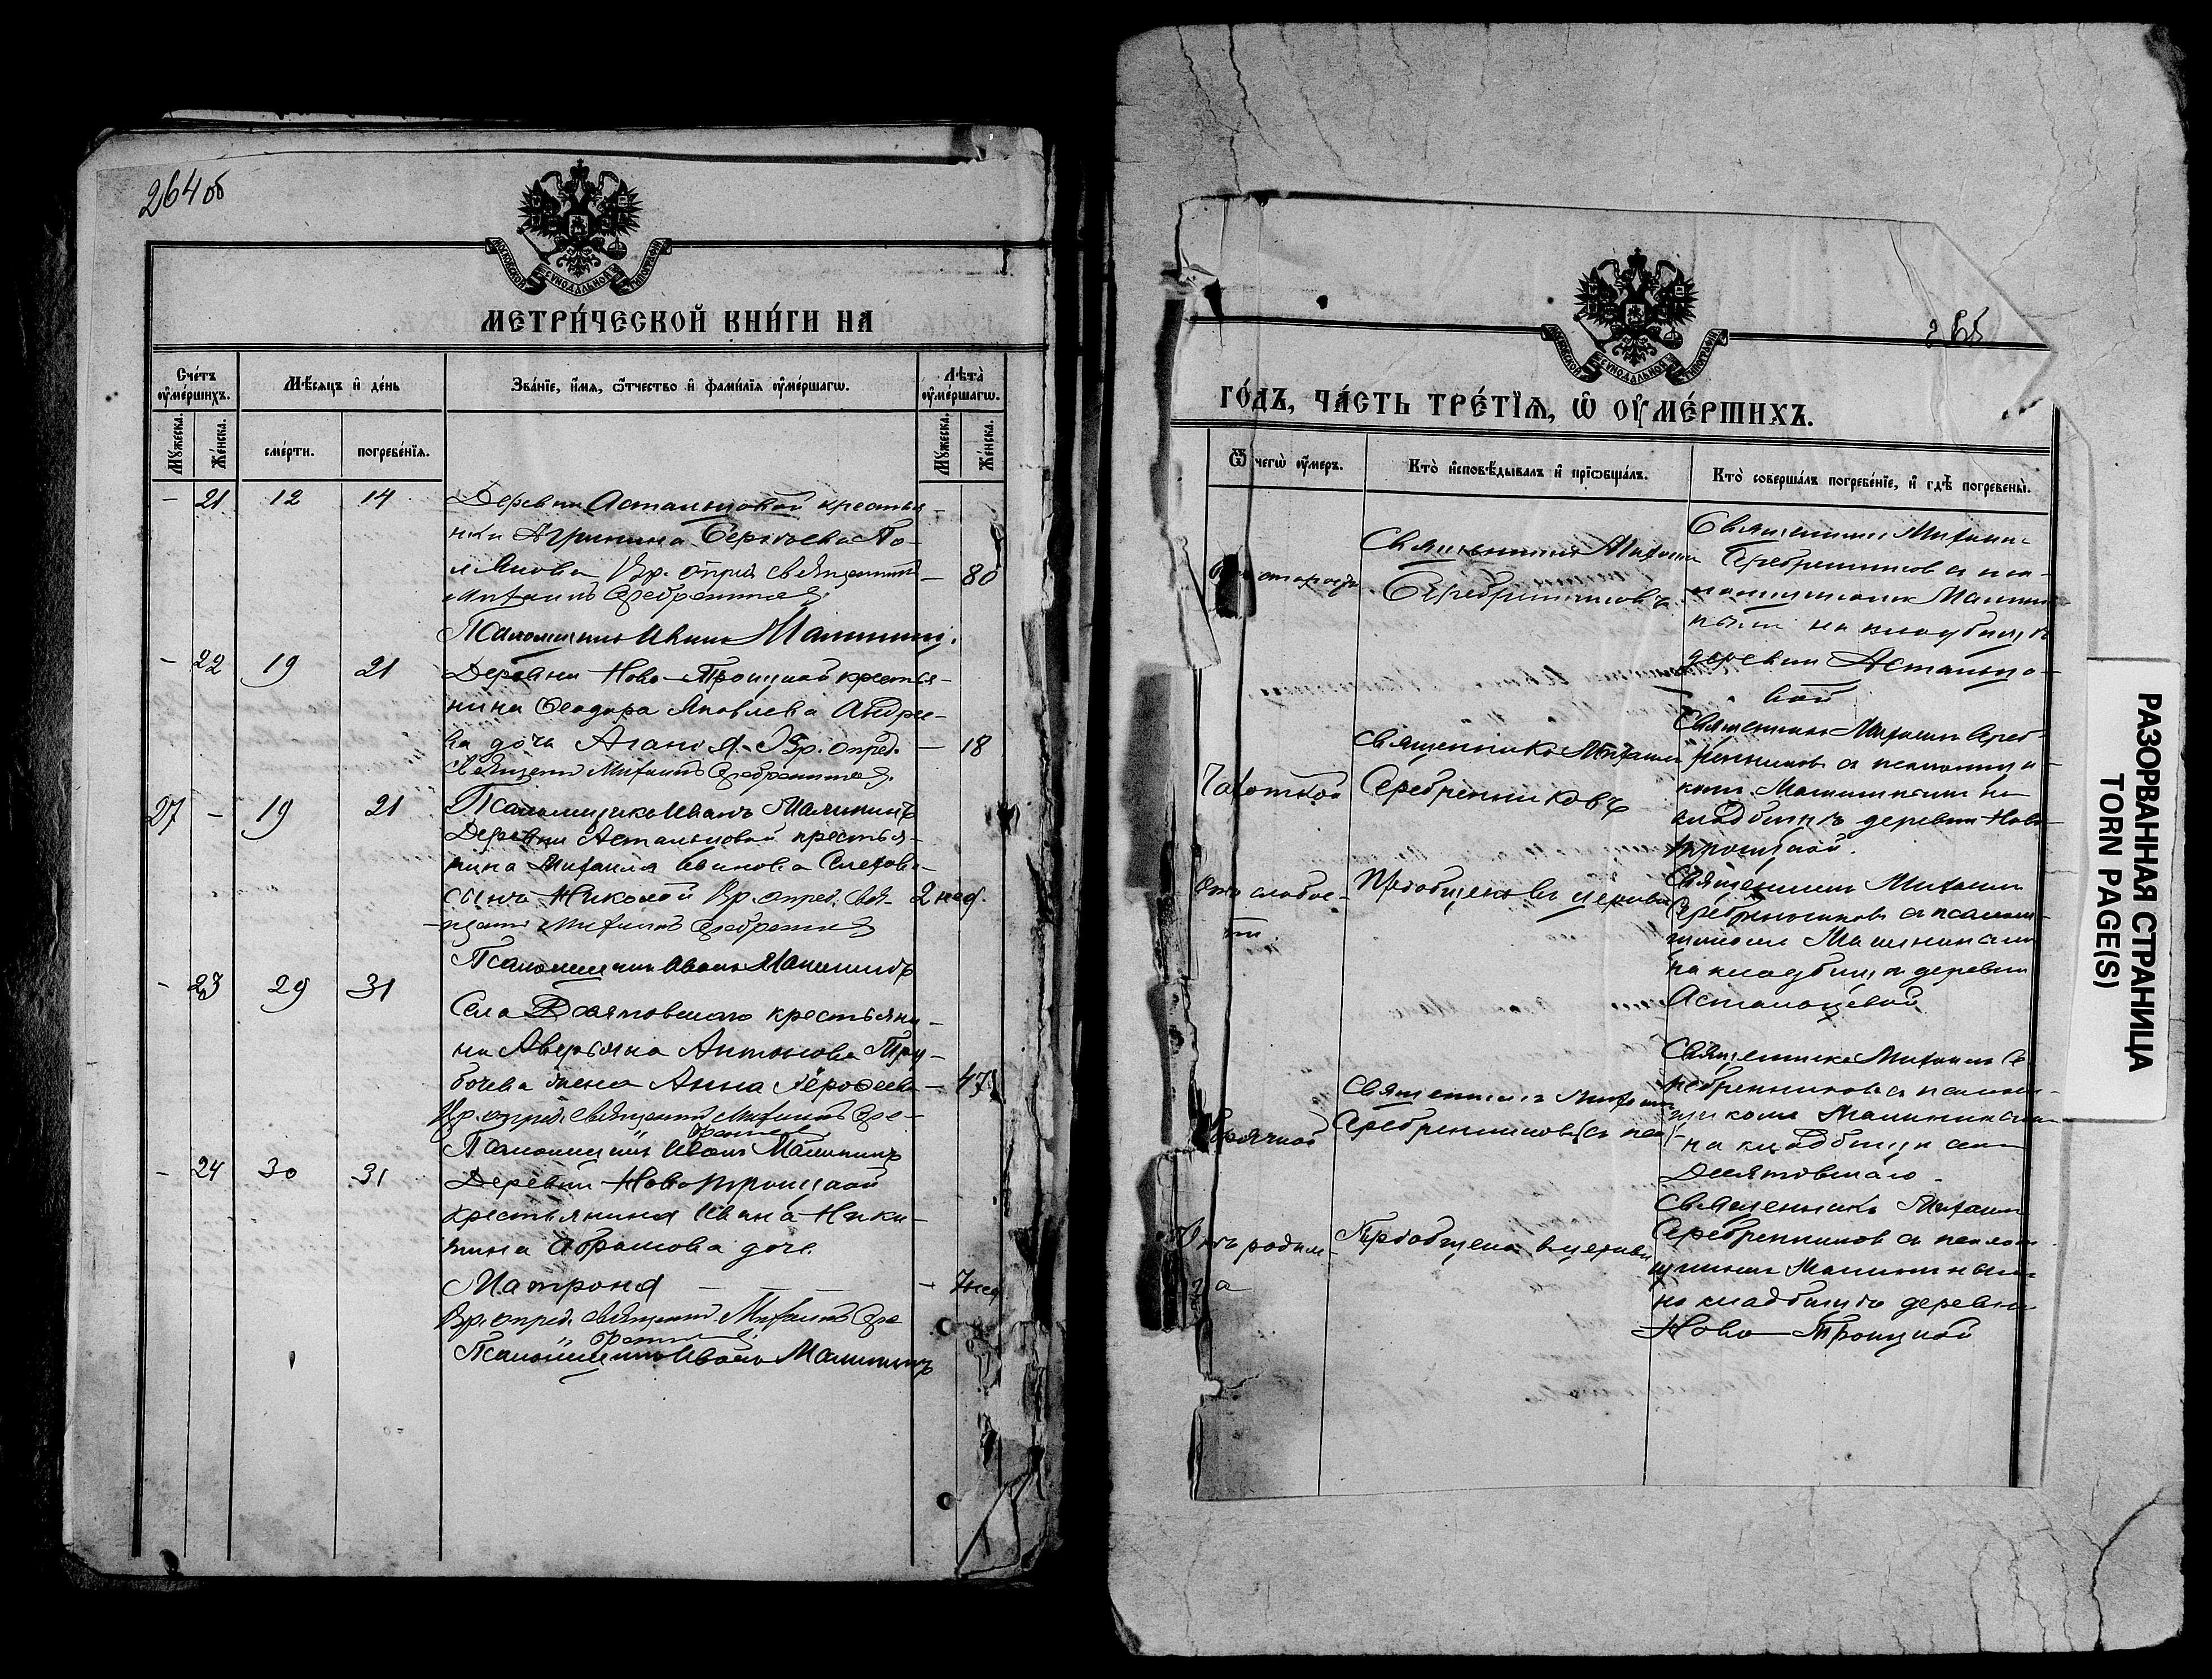 264 об
МОСКОВСКОЙ СУНОДАЛЬНОЙ ТИПОГРАФІИ
МЕТРИ́ЧЕСКОЙ КНИ́ГИ НА
Сче́тъ ᲂу҆ме́ршихъ.
Мѣ́сяцъ и҆ де́нь
Зва́нїе, и҆́мя, ѻ҆́тчество и҆ фами́лїя ᲂу҆ме́ршагѡ.
Лѣта̀ ᲂу҆ме́ршагѡ.
Мꙋ́жеска.
Же́нска.
сме́рти.
погребе́нїя.
Мꙋ́жеска.
Же́нска.
- 21 12 14 Деревни Астальцовой крестья-
нка Агрипина Сергѣева По-
лякова Вр. опред. священникъ - 80
Михаилъ Серебренниковъ
Псаломщикъ Иванъ Малининъ.
- 22 19 21 Деревни Ново-Троицкой крестья-
нина Ѳеодора Яковлева Андрее-
ва дочь Агаѳія. Вр. опред. - 18
Священ. Михаилъ Серебренниковъ
27 - 19 21 Псаломщикъ Иванъ Малининъ
Деревни Астальцовой крестья-
нина Михаила
сынъ Николай Вр. опред. Свя- 2 нед.
щен. Михаилъ Серебренниковъ
Псаломщикъ Иванъ Малининъ
- 23 29 31
Села Долятовскаго крестьяни-
на Аверьяна Антонова Тру-
бочева жена Анна Ероѳеева - 47
Вр. опред. священ. Михаилъ Сере-
бренниковъ
Псаломщикъ Иванъ Малининъ
- 24 30 31 Деревни Новотроицкой
крестьянина Ивана Ники-
тина Абрамова дочь
Матрона - - - 7 нед
Вр. опред. священ. Михаилъ Сере
бренниковъ
Псаломщикъ Иванъ Малининъ
265
МОСКОВСКОЙ СУНОДАЛЬНОЙ ТИПОГРАФІИ
ГО́ДЪ, ЧА́СТЬ ТРЕ́ТЇЯ, Ѡ҆ ОУ҆МЕ́РШИХЪ.
Ѿ чегѡ̀ ᲂу҆́меръ.
Кто̀ и҆сповѣ́дывалъ и҆ прїѡбща́лъ.
Кто̀ соверша́лъ погребе́нїе, и҆ гдѣ̀ погребены̀.
старости
Священникъ Михаилъ
Серебренниковъ
Священникъ Михаилъ
Серебренниковъ съ пса-
ломщикомъ Малини-
нымъ на кладбищѣ
деревни Астальцо-
вой
Чахоткой
Священникъ Михаилъ
Серебренниковъ
Священникъ Михаилъ Сереб-
ренниковъ съ псаломщи-
комъ Малининымъ на
кладбищѣ деревни Ново-
троицкой.
Отъ слабос-
ти
Пріобщенъ въ церкви
Священникъ Михаилъ
Серебренниковъ съ псалом-
щикомъ Малининымъ
на кладбищѣ деревни
Астальцевой
Горячкой
Священникъ Михаилъ
Серебренниковъ
Священникъ Михаилъ Се
ребренниковъ съ псалом-
щикомъ Малининымъ
на кладбищѣ села
Долятовскаго.
Отъ родим-
ца
Пріобщена въ церкви
Священникъ Михаилъ
Серебренниковъ съ псалом
щикомъ Малининымъ
на кладбищѣ деревни
Ново-Троицкой
РАЗОРВАННАЯ СТРАНИЦА
TORN PAGE(S)